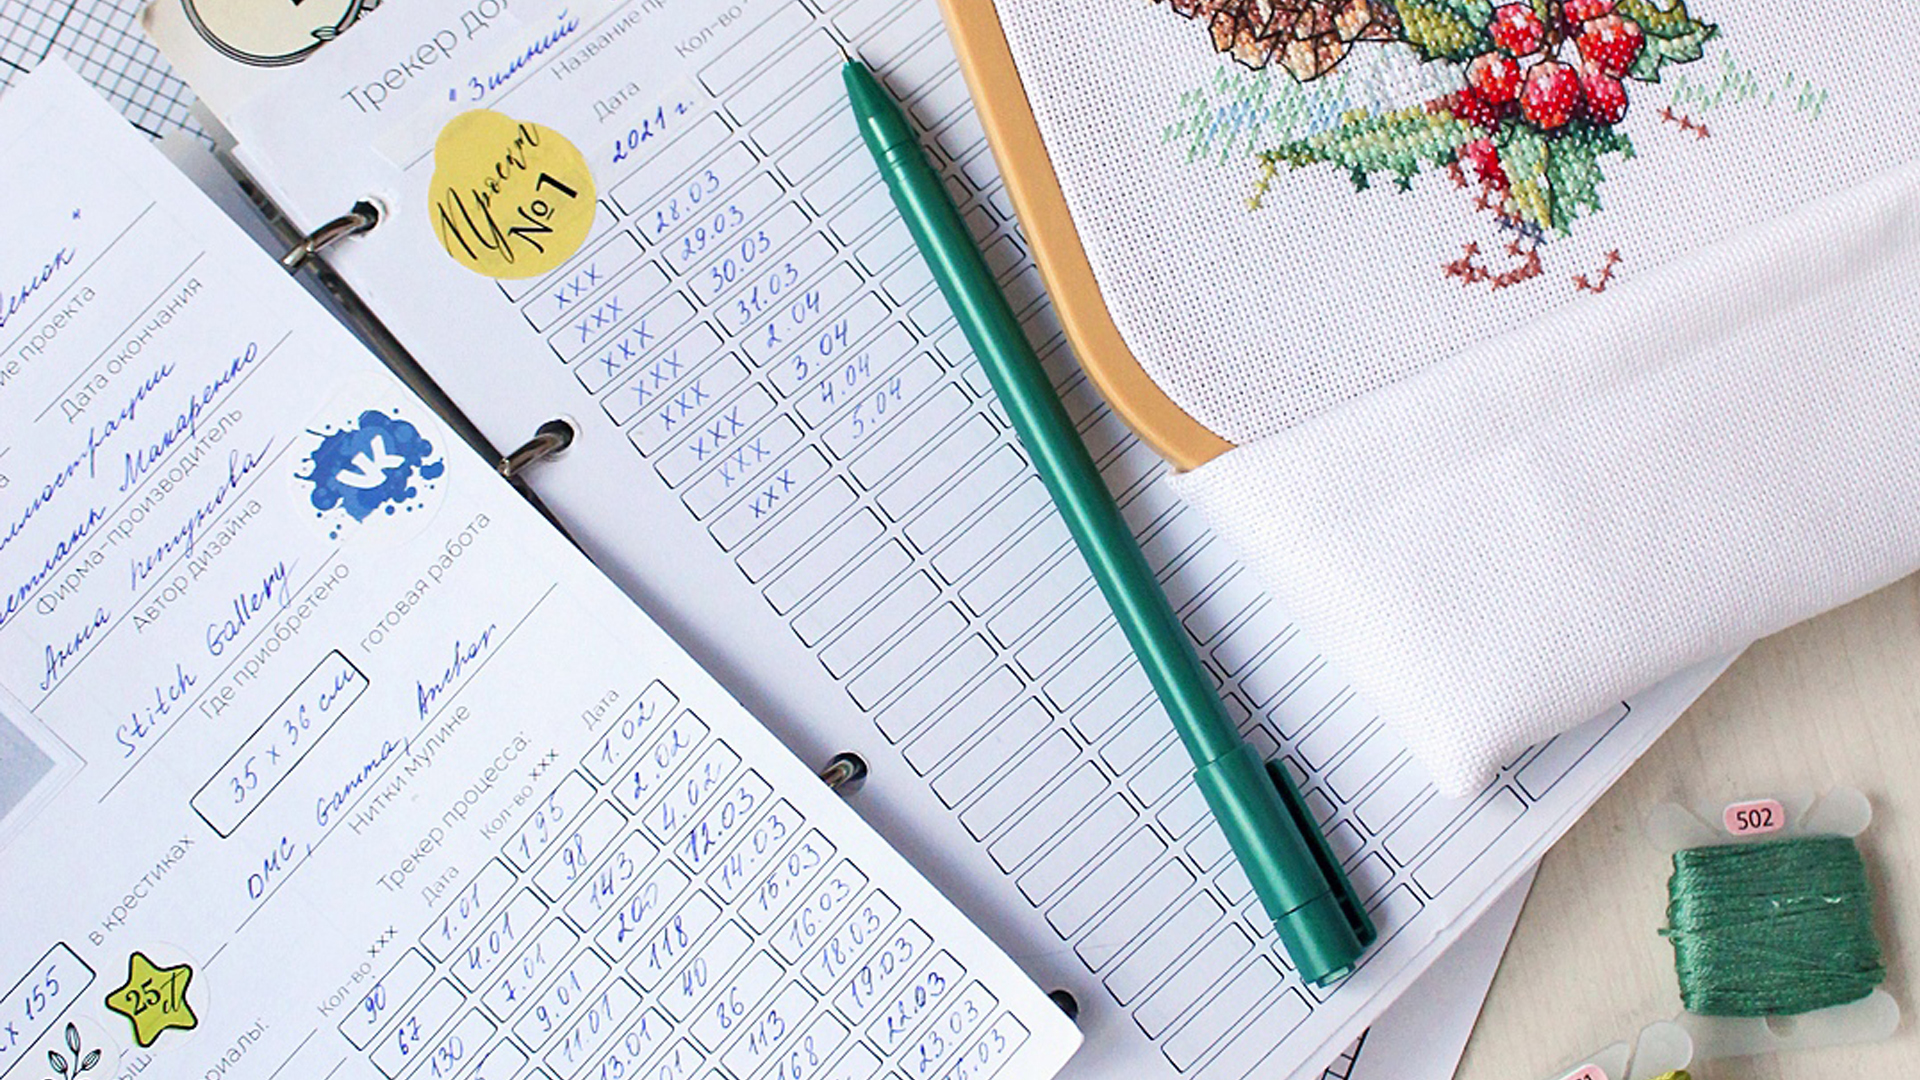 Трекер
"Зимний
Название
Кол-во
Дата
2021 г.
Проект
№1
28.03
xxx
29.03
xxx
30.03
xxx
31.03
xxx
2.04
xxx
3.04
xxx
4.04
xxx
5.04
xxx
"
проекта
Дата окончания
Макаренко
Фирма-производитель
Анна Петунова
Автор дизайна
VK
Stitch Gallery
Где приобретено
35 x 36 см
готовая работа
DMC, Gamma, Anchor
Нитки мулине
в крестиках
x 155
25ct
Трекер процесса:
Кол-во xxx
Дата
Кол-во xxx
Дата
90
1.01
195
1.02
67
4.01
98
2.02
130
7.01
143
4.02
9.01
200
12.03
11.01
118
14.03
13.01
40
15.03
86
16.03
113
18.03
168
19.03
22.03
23.03
502